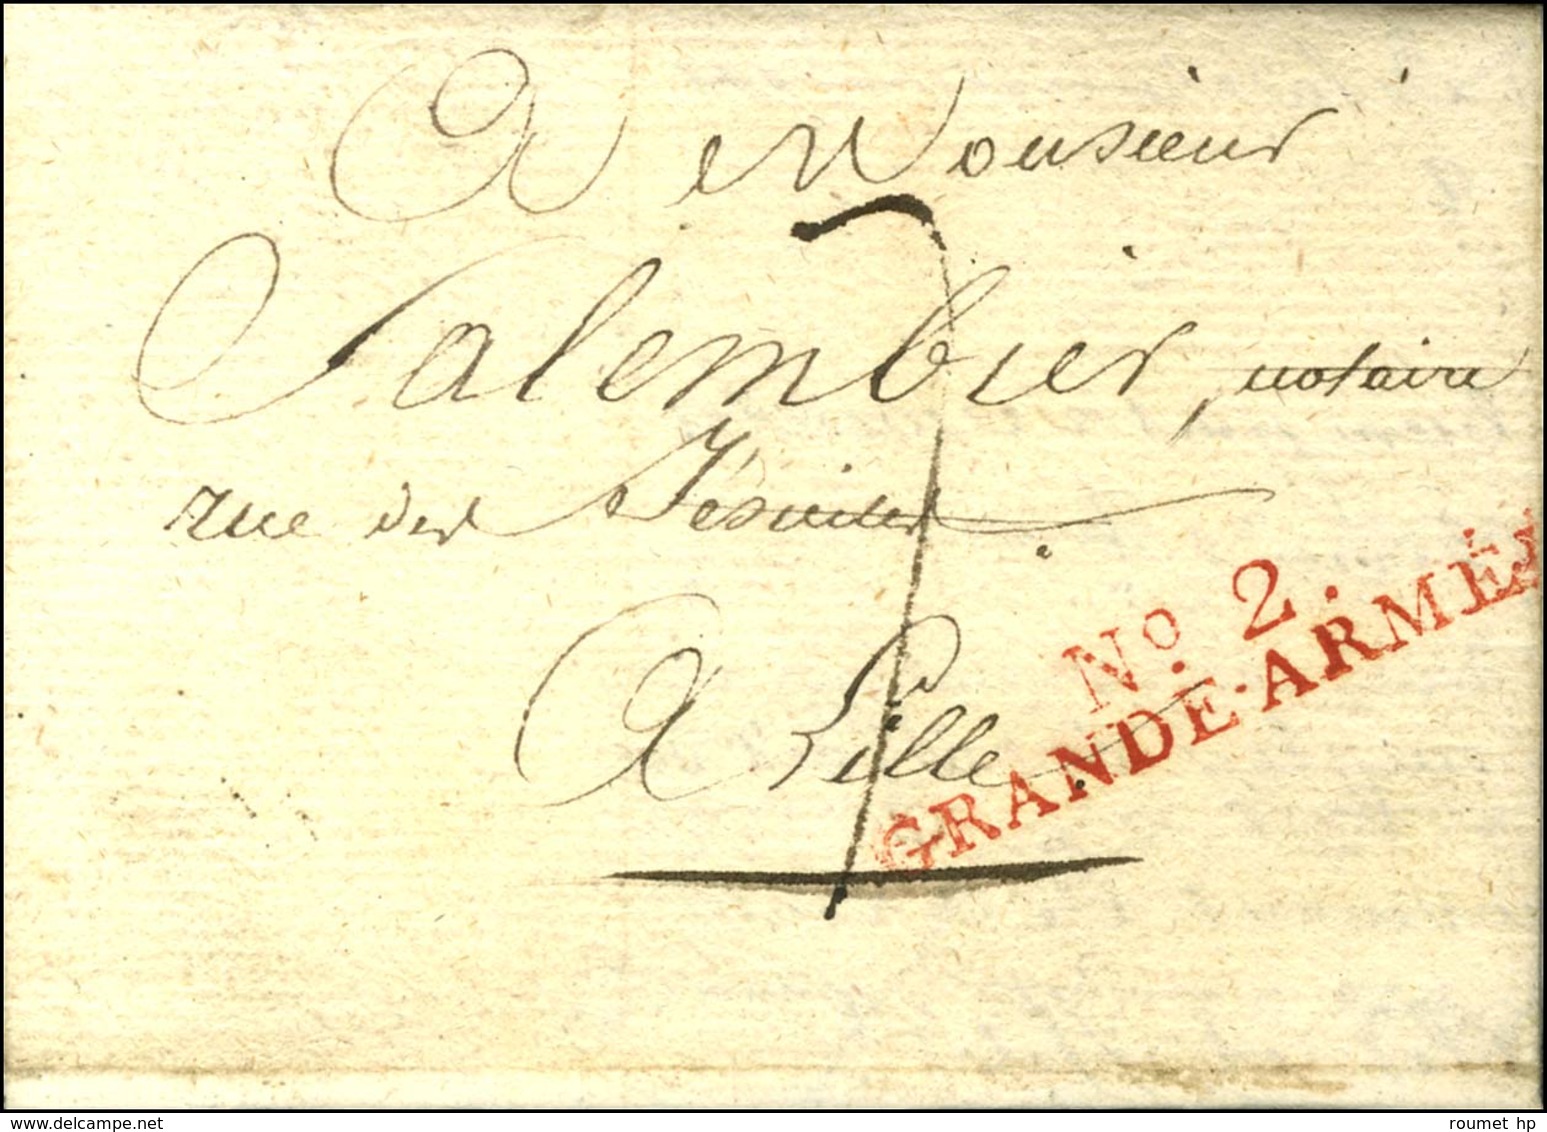 A Monsieur
Salembier, notaire
rue des Jésuites
A Lille.
7
No. 2.
GRANDE-ARMÉE
delcampe.net
roumet hp